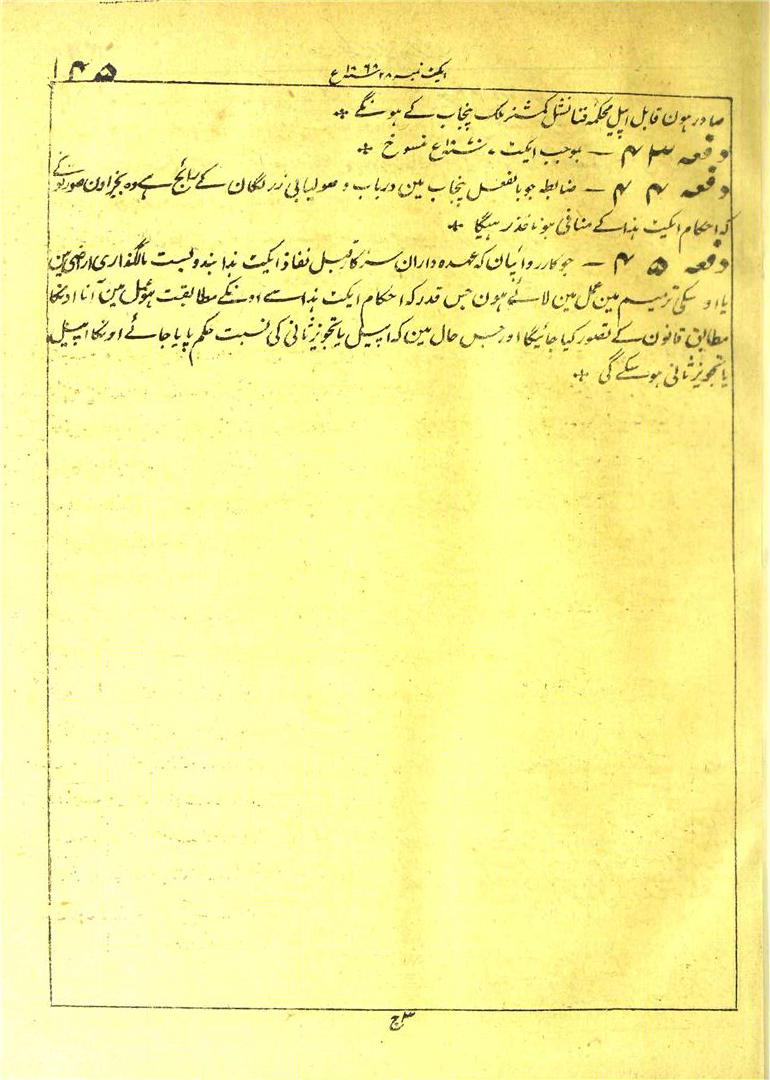 ایکٹ نمبر ۲۸ ۱۸۶۸ء
۱۴۵
صادر ہون قابل اپیل محکمۂ فنانشل کمشنر ملک پنجاب کے ہونگے
دفعہ ۴۳ — بموجب ایکٹ ۱۸۷۰ء منسوخ
دفعہ ۴۴ — ضابطہ جو بالفعل پنجاب مین درباب وصولیابی زر لگان کے رائج ہے وہ بجز اون صورتونکے
کہ احکام ایکٹ ہذا کے منافی ہو نافذ رہیگا
دفعہ ۴۵ — جو کارروائیان کہ عہدہ داران سرکار قبل نفاذ ایکٹ ہذا بندوبست مالگذاری اراضی مین
یا اوسکی ترمیم مین عمل مین لائے ہون جس قدر کہ احکام ایکٹ ہذا سے اونکے مطابقت ہو عمل مین آنا اونکا
مطابق قانون کے تصور کیا جائیگا اور جس حال مین کہ اپیل یا تجویز ثانی کی نسبت حکم پایا جائے اونکا اپیل
یا تجویز ثانی ہو سکے گی
۳ج